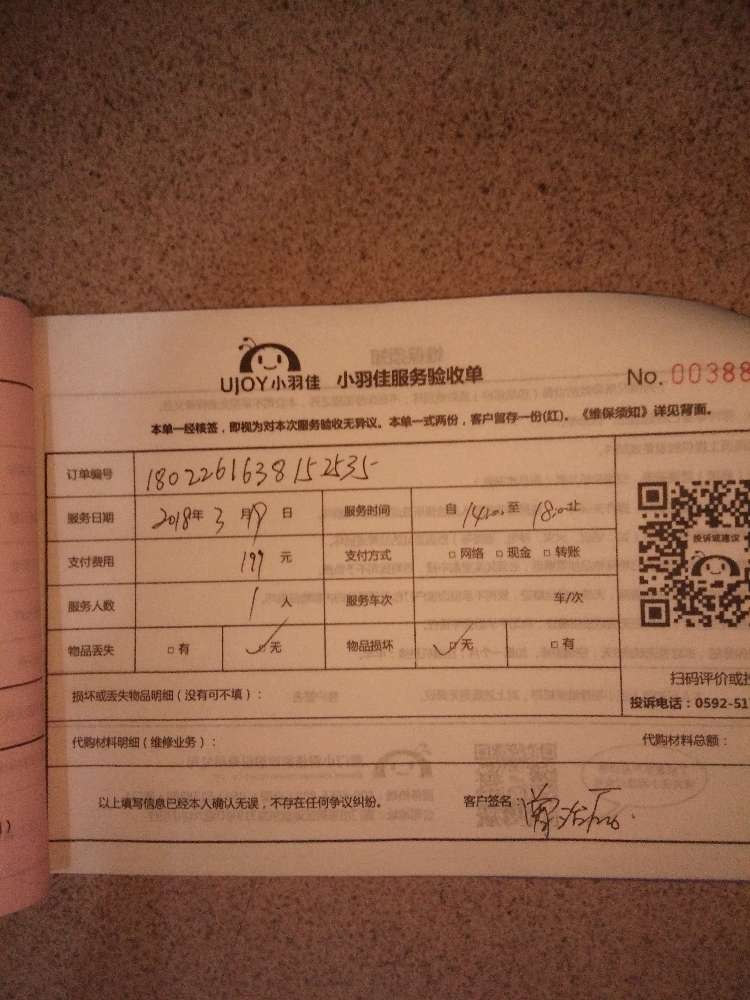 UJOY小羽佳 小羽佳服务验收单 No. 00388
本单一经核签，即视为对本次服务验收无异议。本单一式两份，客户留存一份(红)。《维保须知》详见背面。
订单编号 1802261638152535
服务日期 2018年3月 日 服务时间 自14:00至18:00止
支付费用 199元 支付方式 □网络 □现金 □转账
服务人数 1人 服务车次 车/次
物品丢失 □有 □无 物品损坏 □无 □有
投诉或建议
扫码评价或投
损坏或丢失物品明细（没有可不填）：
投诉电话：0592-517
代购材料明细（维修业务）： 代购材料总额：
以上填写信息已经本人确认无误，不存在任何争议纠纷。 客户签名：